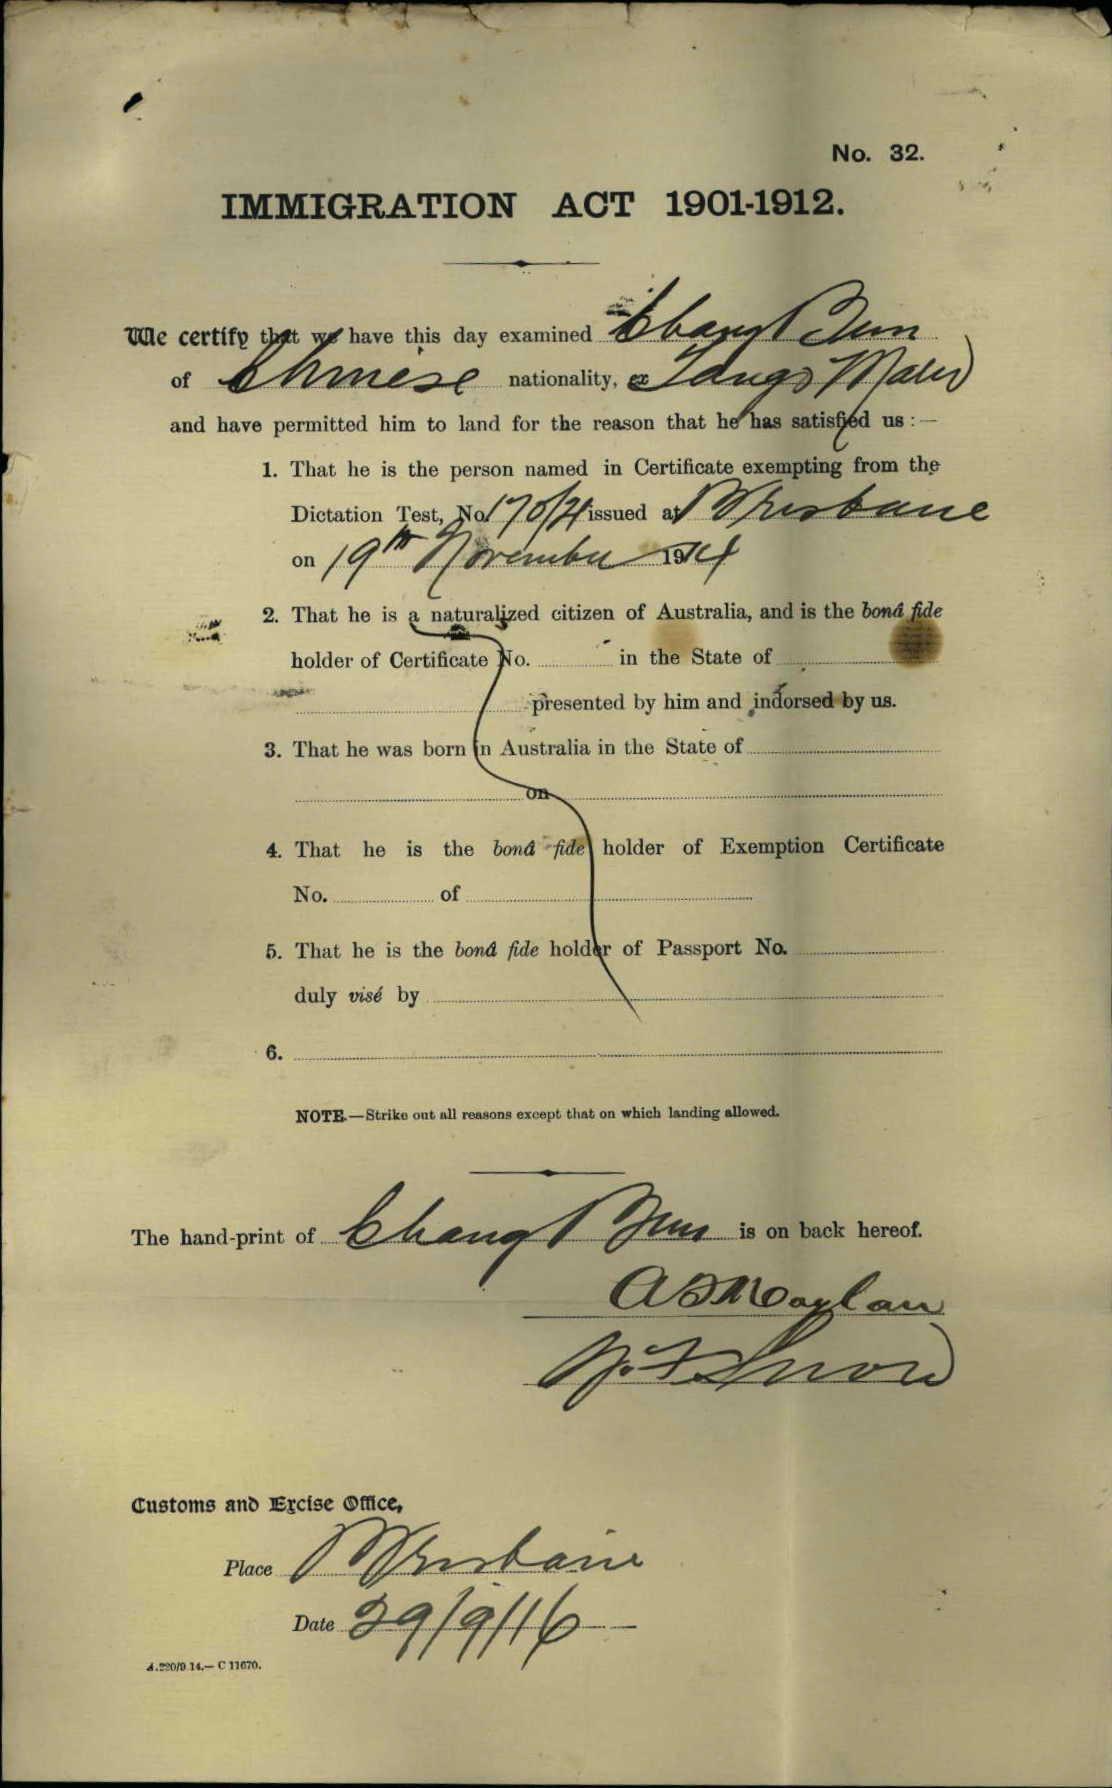 No. 32.
IMMIGRATION ACT 1901-1912.
We certify that we have this day examined Chang Bun
of Chinese nationality, ex Tango Maru
and have permitted him to land for the reason that he has satisfied us :—
1. That he is the person named in Certificate exempting from the
Dictation Test, No. issued at Brisbane
on 19th November 1914
2. That he is a naturalized citizen of Australia, and is the bonâ fide
holder of Certificate No. in the State of
presented by him and indorsed by us.
3. That he was born in Australia in the State of
on
4. That he is the bonâ fide holder of Exemption Certificate
No. of
5. That he is the bonâ fide holder of Passport No.
duly visé by
6.
NOTE.—Strike out all reasons except that on which landing allowed.
The hand-print of Chang Bun is on back hereof.
Snow
Customs and Excise Office,
Place Brisbane
Date 29/9/16
A.220/9.14.— C 11670.